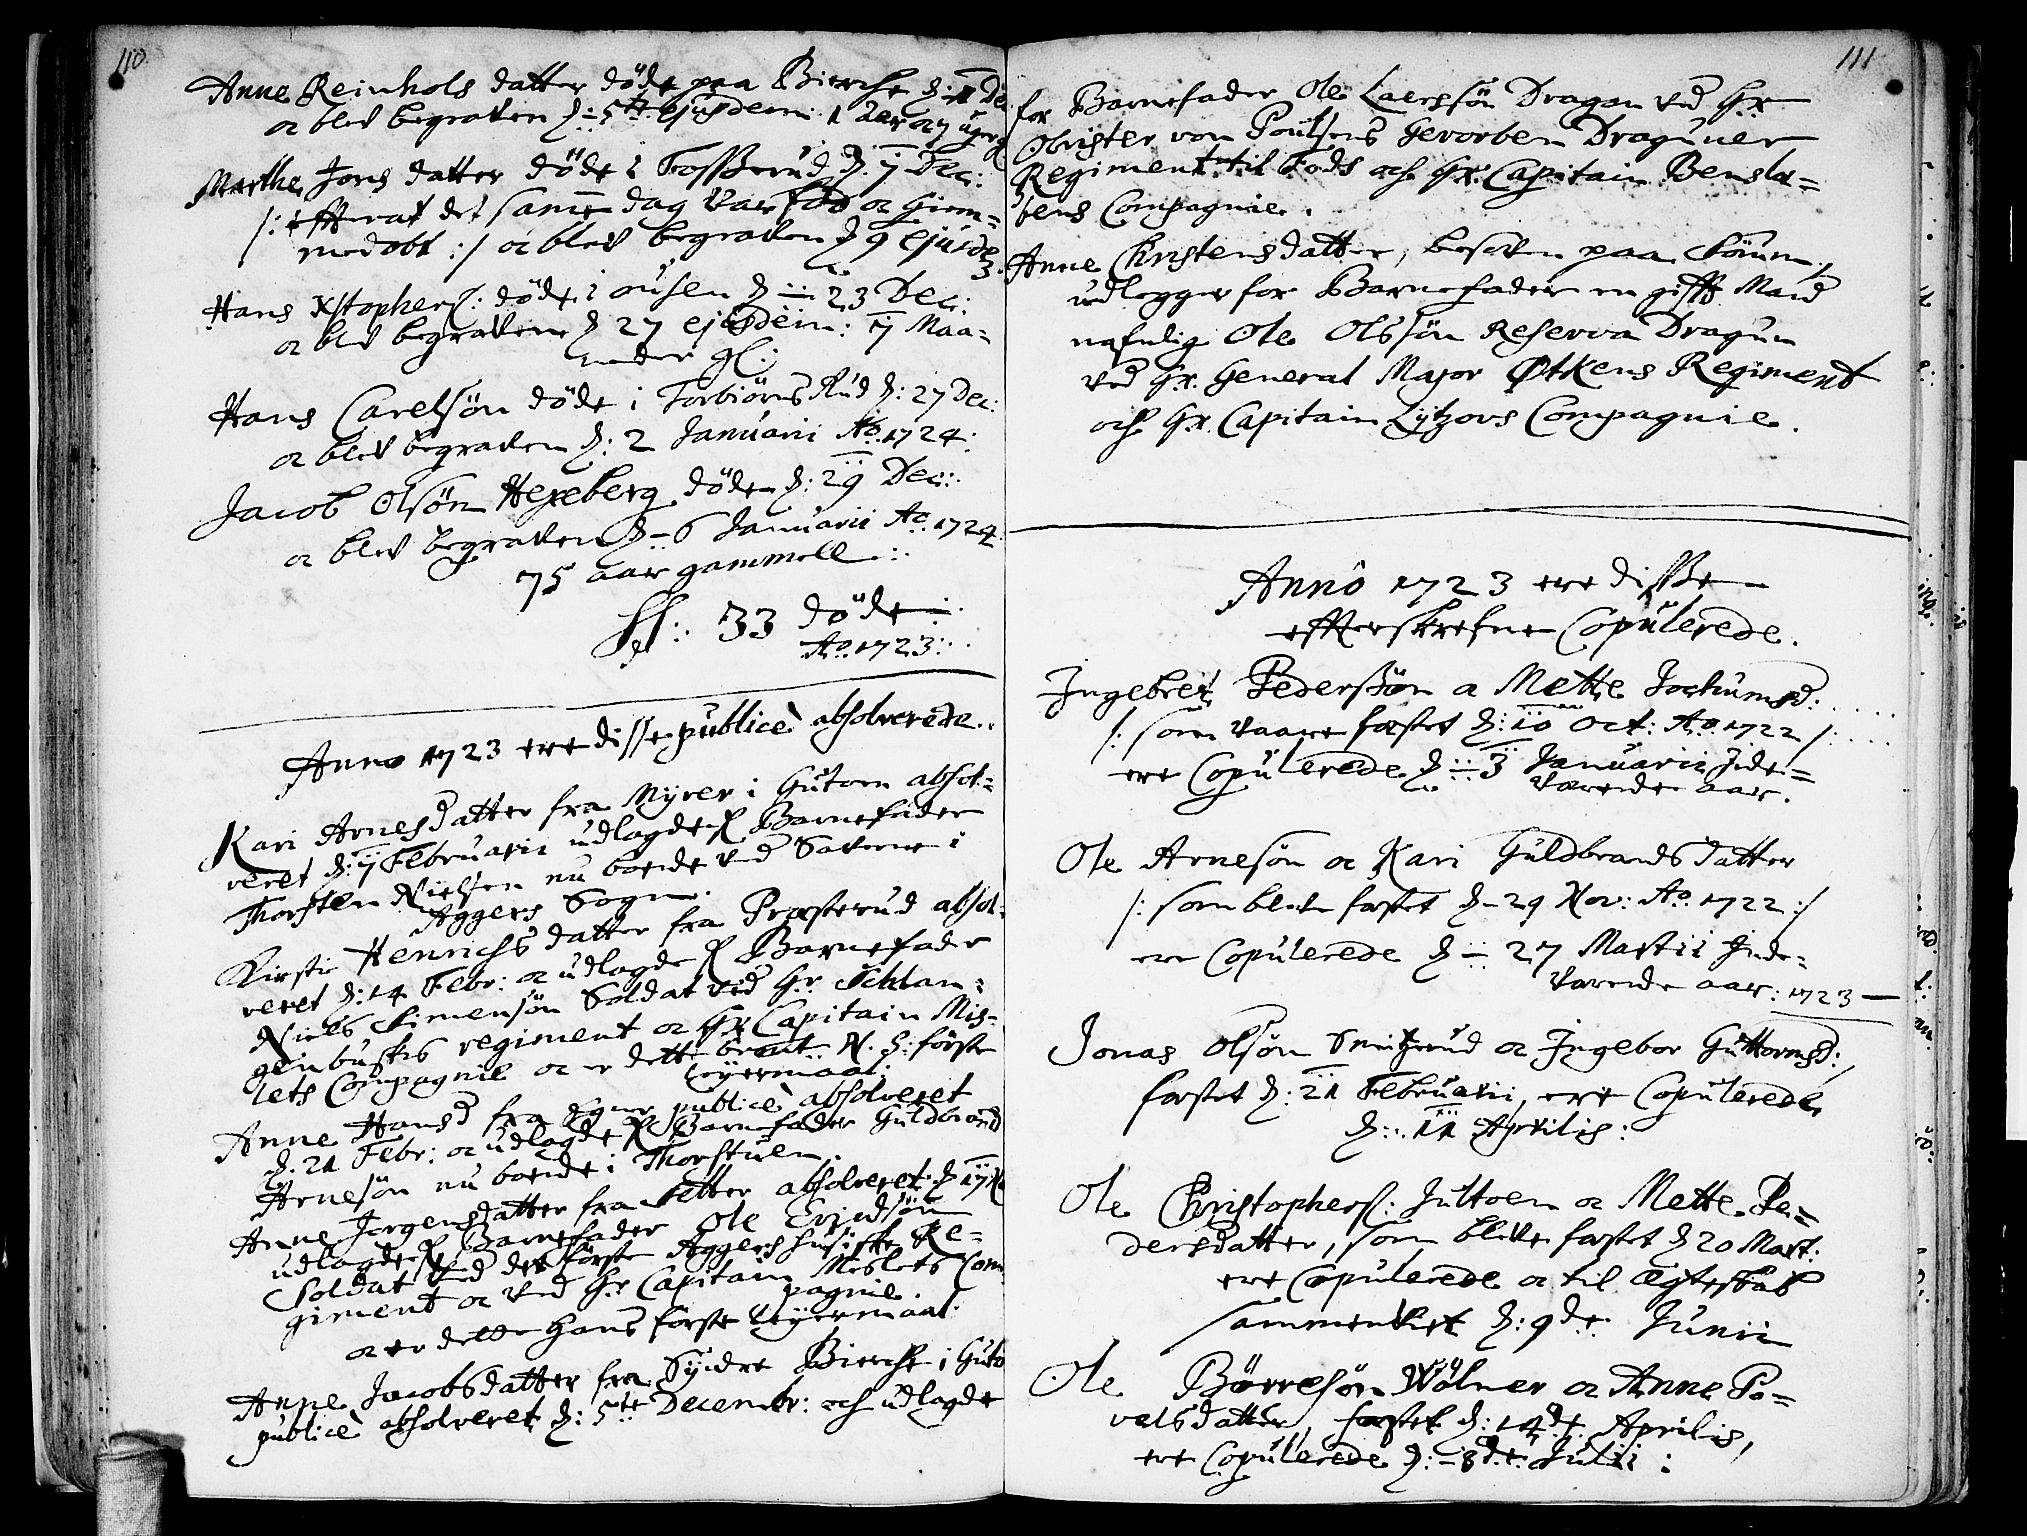 110
Anne Reinhols datter døde paa Bierche d: 1 De
oc blev begraven d: 5te ejusdem: 1 aar oc 7 uger
Marthe Jons datter døde i Fossßerud d. 7 Dec:
/: efterat det samme dag var fød oc hiem-
medøbt :/ oc blev begraven d 9 ejusde
Hans Xstophers: døde i ousen d: 23 Dec:
oc blev begraven d 27 ejusdem: 7 Maa-
neder gl:
Hans Carelsøn døde i TorbiørnsRud d: 27 Dec:
oc blev begraven d: 2 Januarii Ao. 1724:
Jacob Olsøn Hexeberg døde d: 29 Dec:
oc blev begraven d: 6 Januarii Ao. 1724
75 aar gammell
33 døde
Ao. 1723
Anno 1723 ere disse publicè absolverede
Kari Arnesdatter fra Myrer i Gutoen absol-
veret d: 7 Februarii udlagde Barnefader
Thorsten Nielsen nu boende ved Saverne i
Aggers Sogn.
Kirstie Henrichs datter fra Præsterud absol-
veret d: 14 Febr: oc udlagde Barnefader
Niels Simensøn Soldat ved Hr. Schlan-
genbusks regiment oc Hr. Capitain Mis-
lets Compagnie oc er dette første
leyermaal.
Anne Hansd fra publicè absolveret
d. 21 Febr: oc udlagde Barnefader Guldbrand
Arnesøn nu boende i Thorstuen.
Anne Jorgensdatter fra Setter absolveret d
udlagde Barnefader Ole
Soldat ved det første Aggershusiske Re-
giment oc ved Hr Capitain Mislets Com
pagnie.
oc er dette hans første leyermaal
Anne Jacobsdatter fra Syndre Bierche i Guto
publicè absolveret d: 5te Decembr: och udlagde
111
for Barnefader Ole Laerssøn Dragon ved Hr
Obrister von Poulsens Gevorben Draguner
Regiment til Fods och Hr. Capitain
Compagnie.
Anne Christensdatter, besoven paa
udlegger for Barnefader en gifft Mand
nafnlig Ole Olssøn Reserva Dragun
ved Hr. General Major Øtkens Regiment
och Hr. Capitain Lytzovs Compagnie.
Anno 1723 ere disße
effterskrefne Copulerede.
Ingebret Pederßøn oc Mette Jochumsd:
/: som vaare fæstet d: 10 Oct: Ao. 1722 /:
ere Copulerede d: 3 Januarii Inde-
værende aar.
Ole Arnesøn oc Kari Guldbrands datter
/: som bleve fæstet d- 29 Nov: Ao. 1722 :/
ere Copulerede d: 27 Martii Inde-
værende aar: 1723
Jonas Olsøn Smitzrud oc Ingebor Guttormsd:
fæstet d: 21 Februarii, ere Copulerede
d: 11 Aprilis:
Ole Christophers: Juttoen oc Mette Pe-
dersdatter, som bleve fæstet d 20 Mart:
ere Copulerede oc til ægteskab
sammenviet d: 9de Junii
Ole Børresøn Wølner oc Anne Po-
velsdatter, fæstet d: 14de Aprilis,
ere Copulerede d: 8de Julii: